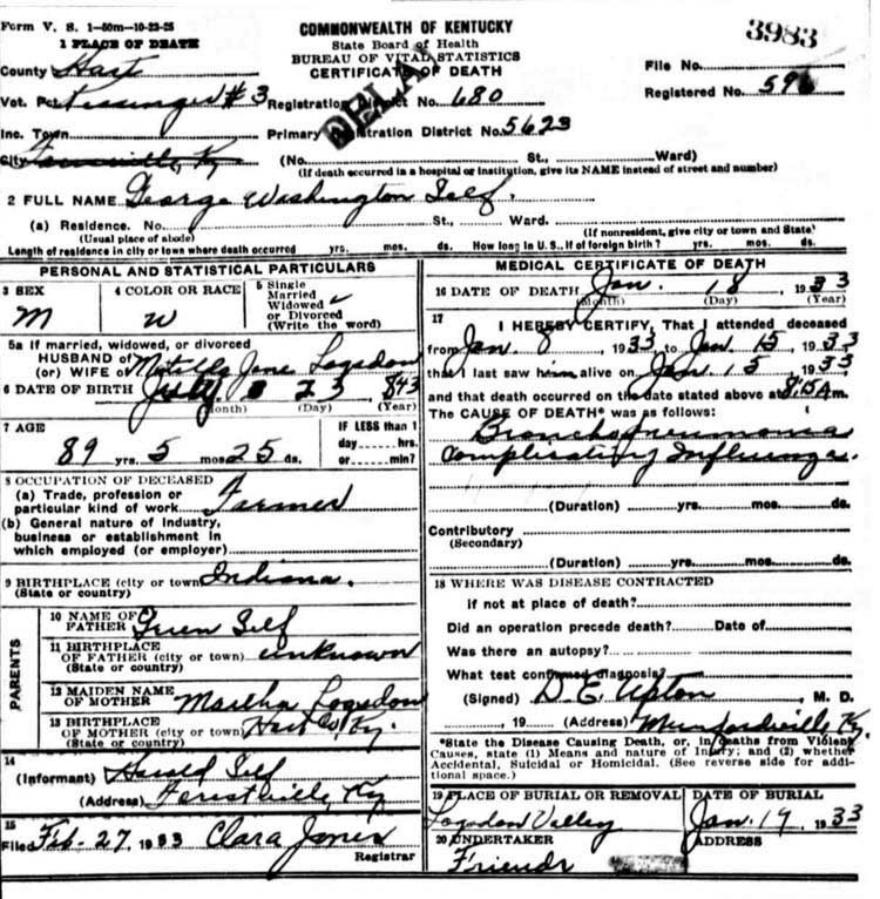 Form V. S. 1-50m-10-23-25
3983
COMMONWEALTH OF KENTUCKY
State Board of Health
BUREAU OF VITAL STATISTICS
CERTIFICATE OF DEATH
1 PLACE OF DEATH
County Hart
File No.
Registered No. 596
Vot. Pct. #3 Registration District No. 680
DELAY
Inc. Town Primary Registration District No. 5623
City Ky (No. St., Ward)
(If death occurred in a hospital or institution, give its NAME instead of street and number)
2 FULL NAME George Washington Self.
(a) Residence. No. St., Ward.
(Usual place of abode) (If nonresident, give city or town and State)
Length of residence in city or town where death occurred yrs. mos. ds. How long in U. S., if of foreign birth? yrs. mos. ds.
PERSONAL AND STATISTICAL PARTICULARS
3 SEX
M
4 COLOR OR RACE
W
5 Single
Married
Widowed ✓
or Divorced
(Write the word)
5a If married, widowed, or divorced
HUSBAND of
(or) WIFE of Jane Logsdon
6 DATE OF BIRTH July 23 843
(Month) (Day) (Year)
7 AGE
89 yrs. 5 mos. 25 ds.
IF LESS than 1
day hrs.
or min?
8 OCCUPATION OF DECEASED
(a) Trade, profession or
particular kind of work Farmer
(b) General nature of industry,
business or establishment in
which employed (or employer)
9 BIRTHPLACE (city or town) Indiana.
(State or country)
PARENTS
10 NAME OF
FATHER Green Self
11 BIRTHPLACE
OF FATHER (city or town) unknown
(State or country)
12 MAIDEN NAME
OF MOTHER Martha Logsdon
13 BIRTHPLACE
OF MOTHER (city or town) Hart Co Ky.
(State or country)
14
(Informant) Harold Self
(Address) Ky
15
Filed Feb- 27, 1933 Clara Jones
Registrar
MEDICAL CERTIFICATE OF DEATH
16 DATE OF DEATH Jan. 18, 1933
(Month) (Day) (Year)
17
I HEREBY CERTIFY, That I attended deceased
from Jan. 8, 1933, to Jan. 15, 1933
that I last saw him alive on Jan 15, 1933
and that death occurred on the date stated above at 8:15 A m.
The CAUSE OF DEATH* was as follows:
Bronchopneumonia
Complicating Influenza.
(Duration) yrs. mos. ds.
Contributory
(Secondary)
(Duration) yrs. mos. ds.
18 WHERE WAS DISEASE CONTRACTED
if not at place of death?
Did an operation precede death? Date of
Was there an autopsy?
What test confirmed diagnosis?
(Signed) D. E. Upton, M. D.
, 19 (Address) Munfordville, Ky.
*State the Disease Causing Death, or, in deaths from Violent
Causes, state (1) Means and nature of Injury; and (2) whether
Accidental, Suicidal or Homicidal. (See reverse side for addi-
tional space.)
19 PLACE OF BURIAL OR REMOVAL
Logsdon Valley
DATE OF BURIAL
Jan. 19 1933
20 UNDERTAKER
Friends
ADDRESS